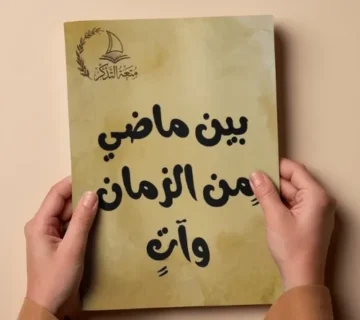 متعة التذكر
بين ماضي
من الزمان
وآتٍ